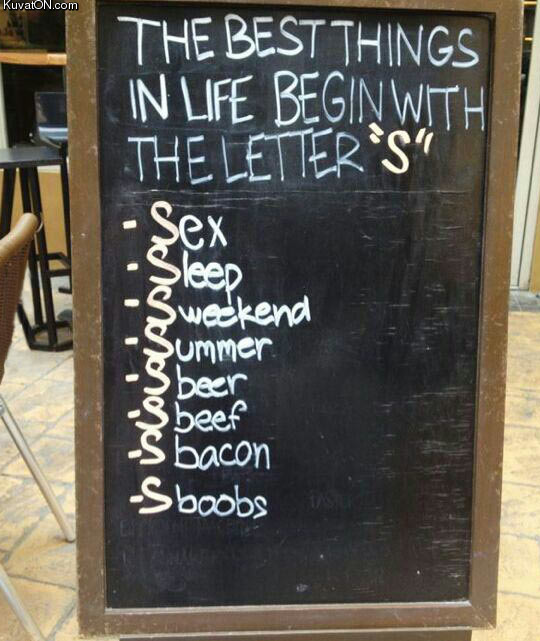 KuvatON.com
THE BEST THINGS
IN LIFE BEGIN WITH
THE LETTER "S"
- Sex
- Sleep
- Sweekend
- Summer
- Sbeer
- Sbeef
- Sbacon
- Sboobs